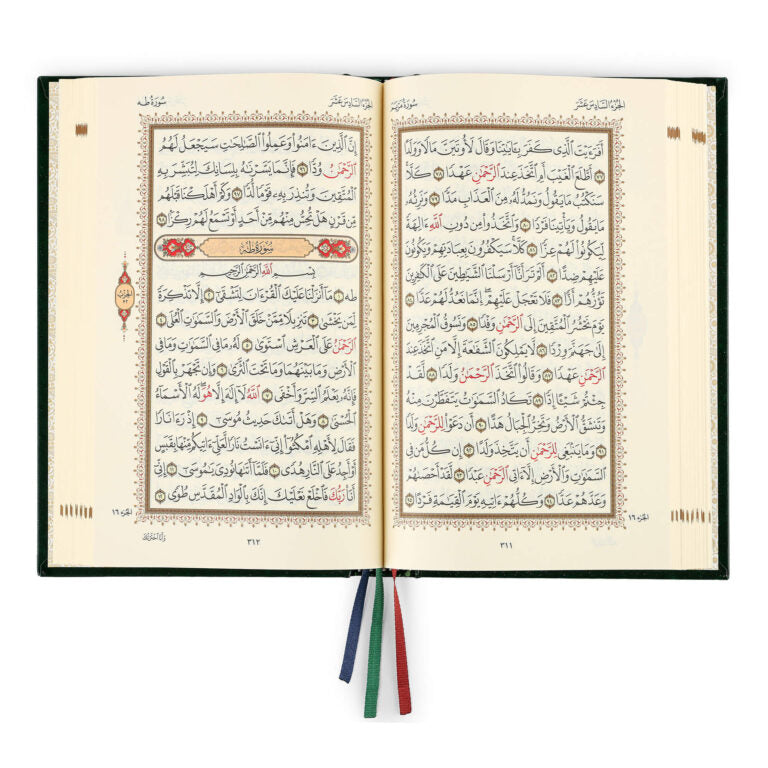 الجزء السادس عشر
سورة مريم
أَفَرَءَيْتَ ٱلَّذِى كَفَرَ بِـَٔايَٰتِنَا وَقَالَ لَأُوتَيَنَّ مَالًا وَوَلَدًا
٧٧ أَطَّلَعَ ٱلْغَيْبَ أَمِ ٱتَّخَذَ عِندَ ٱلرَّحْمَٰنِ عَهْدًا ٧٨ كَلَّا
سَنَكْتُبُ مَا يَقُولُ وَنَمُدُّ لَهُۥ مِنَ ٱلْعَذَابِ مَدًّا ٧٩ وَنَرِثُهُۥ
مَا يَقُولُ وَيَأْتِينَا فَرْدًا ٨٠ وَٱتَّخَذُوا۟ مِن دُونِ ٱللَّهِ ءَالِهَةً
لِّيَكُونُوا۟ لَهُمْ عِزًّا ٨١ كَلَّا ۚ سَيَكْفُرُونَ بِعِبَادَتِهِمْ وَيَكُونُونَ
عَلَيْهِمْ ضِدًّا ٨٢ أَلَمْ تَرَ أَنَّآ أَرْسَلْنَا ٱلشَّيَٰطِينَ عَلَى ٱلْكَٰفِرِينَ
تَؤُزُّهُمْ أَزًّا ٨٣ فَلَا تَعْجَلْ عَلَيْهِمْ ۖ إِنَّمَا نَعُدُّ لَهُمْ عَدًّا ٨٤
يَوْمَ نَحْشُرُ ٱلْمُتَّقِينَ إِلَى ٱلرَّحْمَٰنِ وَفْدًا ٨٥ وَنَسُوقُ ٱلْمُجْرِمِينَ
إِلَىٰ جَهَنَّمَ وِرْدًا ٨٦ لَّا يَمْلِكُونَ ٱلشَّفَٰعَةَ إِلَّا مَنِ ٱتَّخَذَ عِندَ
ٱلرَّحْمَٰنِ عَهْدًا ٨٧ وَقَالُوا۟ ٱتَّخَذَ ٱلرَّحْمَٰنُ وَلَدًا ٨٨ لَّقَدْ
جِئْتُمْ شَيْـًٔا إِدًّا ٨٩ تَكَادُ ٱلسَّمَٰوَٰتُ يَتَفَطَّرْنَ مِنْهُ
وَتَنشَقُّ ٱلْأَرْضُ وَتَخِرُّ ٱلْجِبَالُ هَدًّا ٩٠ أَن دَعَوْا۟ لِلرَّحْمَٰنِ وَلَدًا
٩١ وَمَا يَنۢبَغِى لِلرَّحْمَٰنِ أَن يَتَّخِذَ وَلَدًا ٩٢ إِن كُلُّ مَن فِى
ٱلسَّمَٰوَٰتِ وَٱلْأَرْضِ إِلَّآ ءَاتِى ٱلرَّحْمَٰنِ عَبْدًا ٩٣ لَّقَدْ أَحْصَىٰهُمْ
وَعَدَّهُمْ عَدًّا ٩٤ وَكُلُّهُمْ ءَاتِيهِ يَوْمَ ٱلْقِيَٰمَةِ فَرْدًا ٩٥
الجزء ١٦
٣١١
الجزء السادس عشر
سورة طه
إِنَّ ٱلَّذِينَ ءَامَنُوا۟ وَعَمِلُوا۟ ٱلصَّٰلِحَٰتِ سَيَجْعَلُ لَهُمُ
ٱلرَّحْمَٰنُ وُدًّا ٩٦ فَإِنَّمَا يَسَّرْنَٰهُ بِلِسَانِكَ لِتُبَشِّرَ بِهِ
ٱلْمُتَّقِينَ وَتُنذِرَ بِهِۦ قَوْمًا لُّدًّا ٩٧ وَكَمْ أَهْلَكْنَا قَبْلَهُم
مِّن قَرْنٍ هَلْ تُحِسُّ مِنْهُم مِّنْ أَحَدٍ أَوْ تَسْمَعُ لَهُمْ رِكْزًۢا ٩٨
سورة طه
بِسْمِ ٱللَّهِ ٱلرَّحْمَٰنِ ٱلرَّحِيمِ
طه ١ مَآ أَنزَلْنَا عَلَيْكَ ٱلْقُرْءَانَ لِتَشْقَىٰٓ ٢ إِلَّا تَذْكِرَةً
لِّمَن يَخْشَىٰ ٣ تَنزِيلًا مِّمَّنْ خَلَقَ ٱلْأَرْضَ وَٱلسَّمَٰوَٰتِ ٱلْعُلَى ٤
ٱلرَّحْمَٰنُ عَلَى ٱلْعَرْشِ ٱسْتَوَىٰ ٥ لَهُۥ مَا فِى ٱلسَّمَٰوَٰتِ وَمَا فِى
ٱلْأَرْضِ وَمَا بَيْنَهُمَا وَمَا تَحْتَ ٱلثَّرَىٰ ٦ وَإِن تَجْهَرْ بِٱلْقَوْلِ
فَإِنَّهُۥ يَعْلَمُ ٱلسِّرَّ وَأَخْفَى ٧ ٱللَّهُ لَآ إِلَٰهَ إِلَّا هُوَ ۖ لَهُ ٱلْأَسْمَآءُ
ٱلْحُسْنَىٰ ٨ وَهَلْ أَتَىٰكَ حَدِيثُ مُوسَىٰٓ ٩ إِذْ رَءَا نَارًا
فَقَالَ لِأَهْلِهِ ٱمْكُثُوٓا۟ إِنِّىٓ ءَانَسْتُ نَارًا لَّعَلِّىٓ ءَاتِيكُم مِّنْهَا بِقَبَسٍ
أَوْ أَجِدُ عَلَى ٱلنَّارِ هُدًى ١٠ فَلَمَّآ أَتَىٰهَا نُودِىَ يَٰمُوسَىٰٓ ١١ إِنِّىٓ
أَنَا۠ رَبُّكَ فَٱخْلَعْ نَعْلَيْكَ ۖ إِنَّكَ بِٱلْوَادِ ٱلْمُقَدَّسِ طُوًى ١٢
الحزب
٣٢
الجزء ١٦
٣١٢
وأنا اخترتك